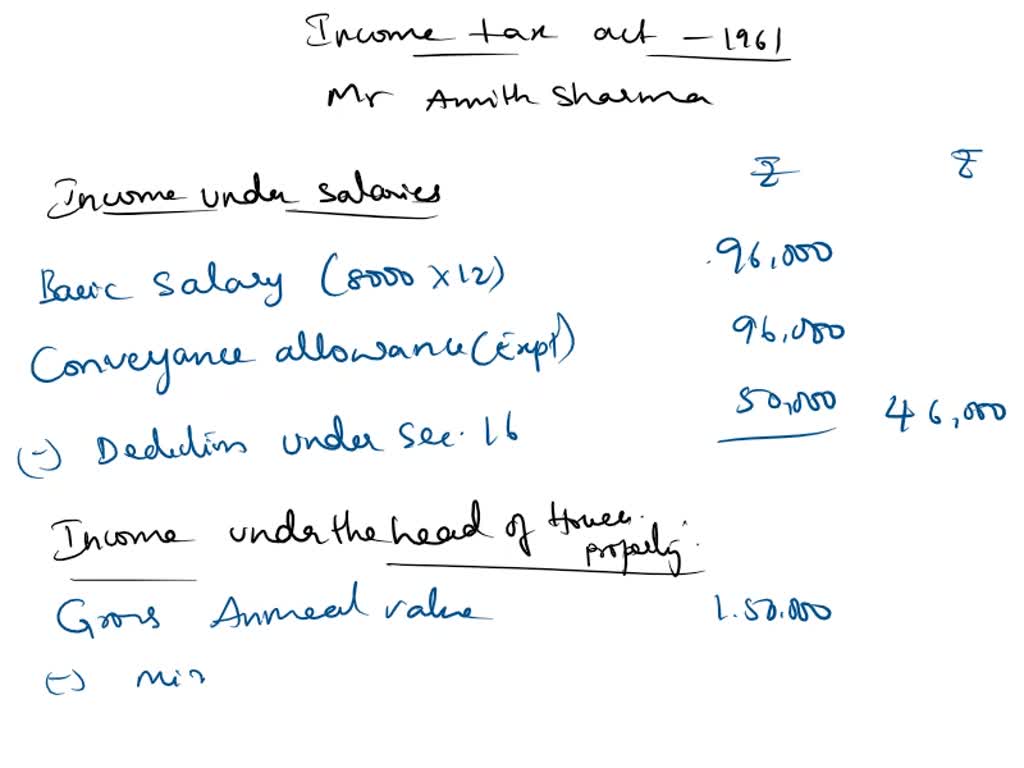 Income tax act - 1961
Mr Amith Sharma
₹ ₹
Income under salaries
Basic Salary (8000 x 12) 96,000
Conveyance allowance (Expt) 96,000
(-) Deductions under sec. 16 50,000 46,000
Income under the head of House property
Gross Annual value 1.50.000
(-) Mi